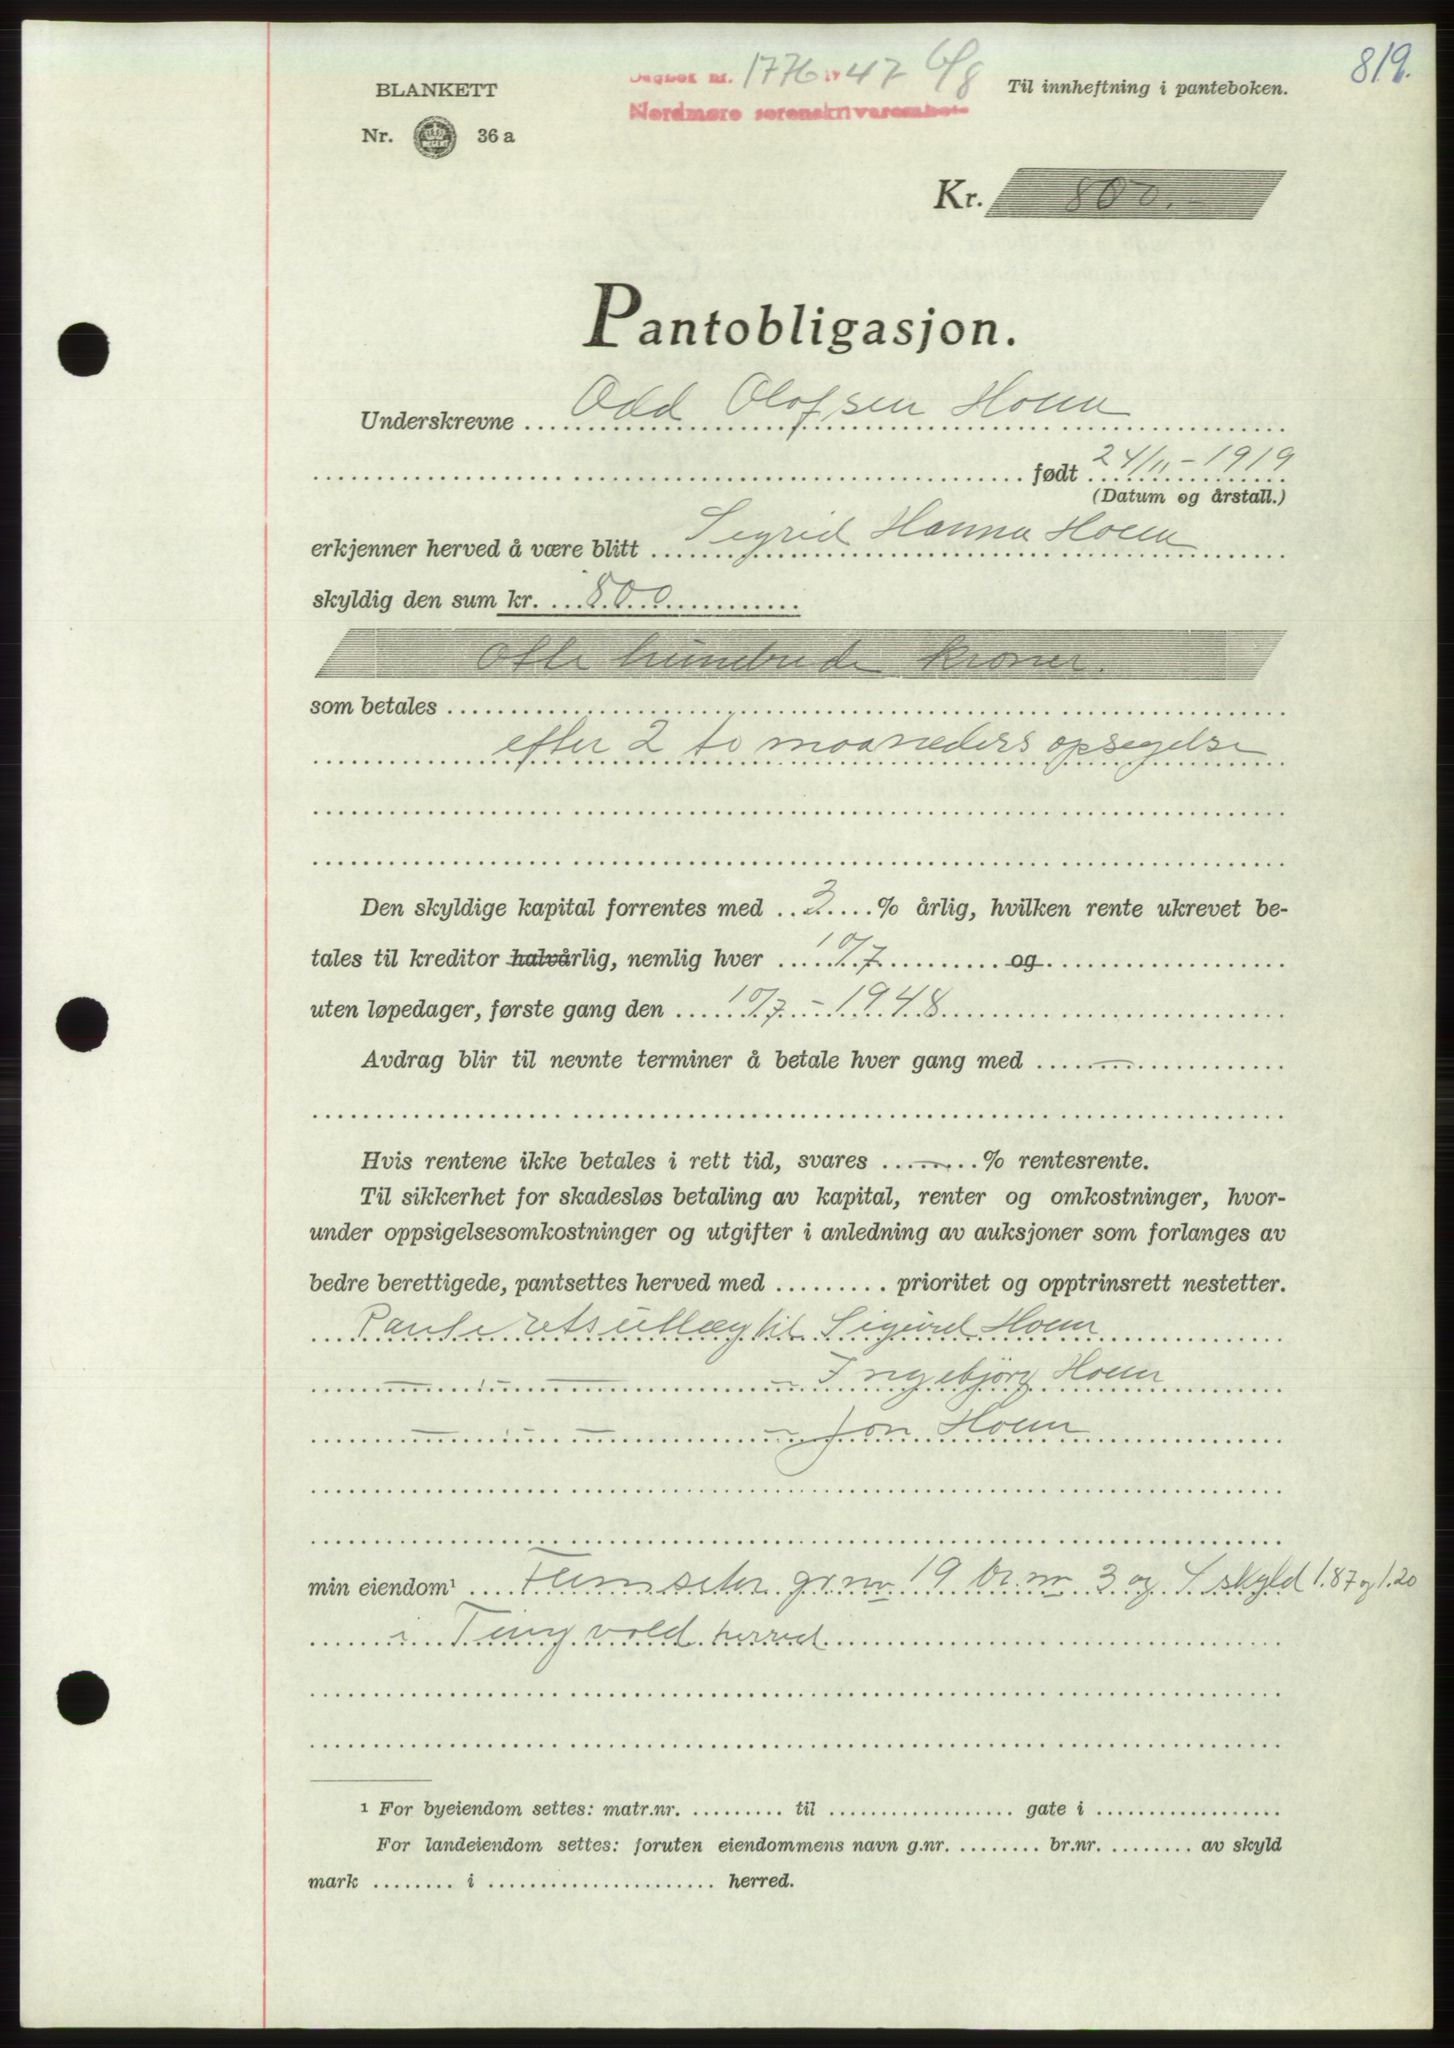 819.
Dagbok nr. 1776 1947 6/8
Nordmøre sorenskriverembete
BLANKETT
Nr. 36 a
Til innheftning i panteboken.
Kr. 800.-
Pantobligasjon.
Underskrevne Odd Olofsen Hoem
født 24/11-1919
(Datum og årstall.)
erkjenner herved å være blitt Sigrid Hanna Hoem
skyldig den sum kr. 800
Otte hundrede kroner.
som betales
efter 2 to maaneders opsigelse
Den skyldige kapital forrentes med 3 % årlig, hvilken rente ukrevet be-
tales til kreditor halvårlig, nemlig hver 10/7 og
uten løpedager, første gang den 10/7-1948
Avdrag blir til nevnte terminer å betale hver gang med —
Hvis rentene ikke betales i rett tid, svares — % rentesrente.
Til sikkerhet for skadesløs betaling av kapital, renter og omkostninger, hvor-
under oppsigelsesomkostninger og utgifter i anledning av auksjoner som forlanges av
bedre berettigede, pantsettes herved med ......... prioritet og opptrinsrett nestetter.
til Sigurd Hoem
— " — - Ingebjørg Hoem
— " — - Jon Hoem
min eiendom¹ gr nr 19 Br. nr 3 og skyld 1.87 og 1.20
i Tingvold herred
¹ For byeiendom settes: matr.nr. ......... til .................. gate i ..................
For landeiendom settes: foruten eiendommens navn g.nr. ........ br.nr. ........ av skyld
mark ........ i ...................... herred.